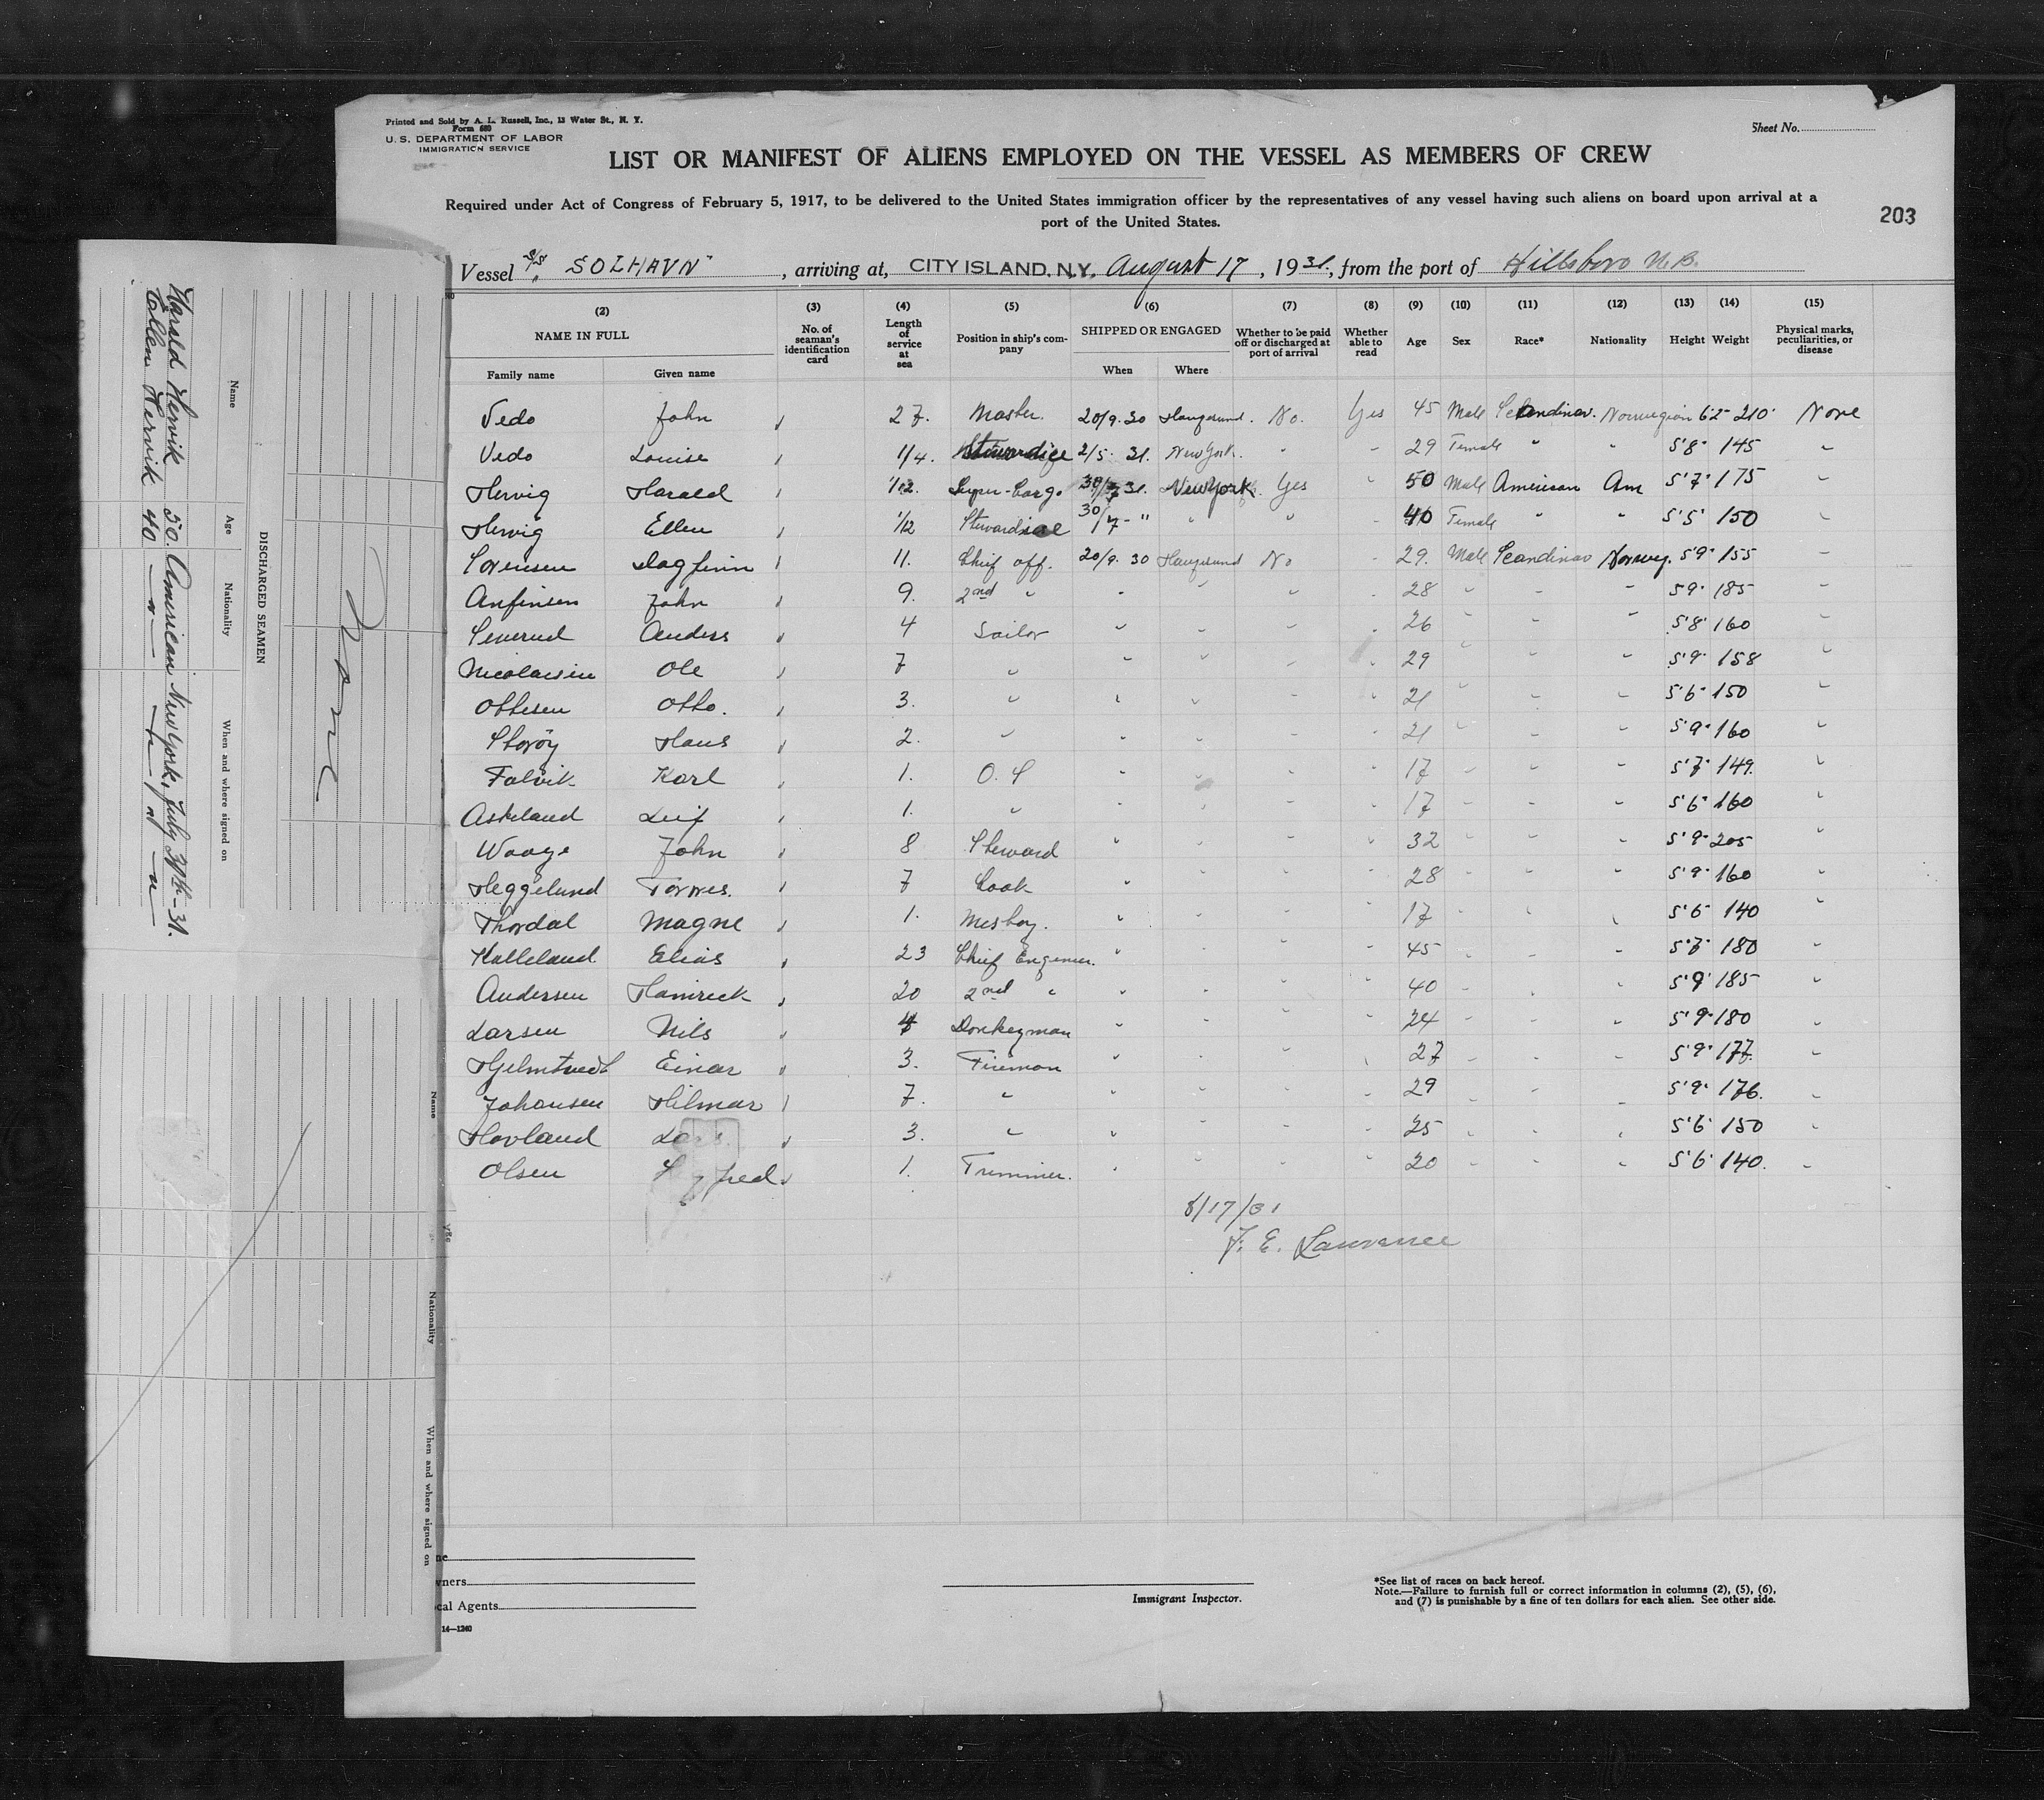 Printed and Sold by A. L. Russell, Inc., 13 Water St., N. Y.
Form 680
U. S. DEPARTMENT OF LABOR
IMMIGRATION SERVICE
Sheet No.
LIST OR MANIFEST OF ALIENS EMPLOYED ON THE VESSEL AS MEMBERS OF CREW
Required under Act of Congress of February 5, 1917, to be delivered to the United States immigration officer by the representatives of any vessel having such aliens on board upon arrival at a
port of the United States.
203
Vessel S/S "SOLHAVN", arriving at, CITY ISLAND, N.Y. August 17, 1931, from the port of Hillsboro N.B.
(2) (3) (4) (5) (6) (7) (8) (9) (10) (11) (12) (13) (14) (15)
NAME IN FULL
Family name Given name
No. of seaman's identification card
Length of service at sea
Position in ship's company
SHIPPED OR ENGAGED
When Where
Whether to be paid off or discharged at port of arrival
Whether able to read
Age Sex Race* Nationality Height Weight
Physical marks, peculiarities, or disease
Vedo John 27. Master. 20/9.30 Haugesund. No. Yes 45 Male Scandinav. Norwegian 6'2" 210 None
Vedo Louise 1/4. Stewardice 2/5 31. New York. " " 29 Female " " 5'8" 145 "
Hervig Harald 1/12. Super-Cargo 30/7 31. New York. Yes " 50 Male American Am 5'7" 175 "
Hervig Ellen 1/12 30/7 - " " " " 40 Female " " 5'5" 150 "
Sorensen Dagfinn 11. Chief off. 20/9.30 Haugesund No " 29. Male Scandinav Norweg. 5'9" 155 "
Anfinsen John 9. 2nd " " " " " 28 " " " 5'9" 185 "
Severud Anders 4 Sailor " " " " 26 " " " 5'8" 160 "
Nicolaisen Ole 7 " " " " " 29 " " " 5'9" 158 "
Ottesen Otto. 3. " " " " " 21 " " " 5'6" 150 "
Storöy Hans 2. " " " " " 21 " " " 5'9" 160 "
Falvik Karl 1. O.S " " " " 17 " " " 5'7" 149. "
Askeland Leif 1. " " " " " 17 " " " 5'6" 160 "
Waage John 8 Steward " " " " 32 " " " 5'9" 205 "
Heggelund Torres. 7 Cook " " " " 28 " " " 5'9" 160 "
Thordal Magne 1. Mesboy. " " " " 17 " " " 5'6" 140 "
Kalleland Elias 23 Chief Engineer. " " " " 45 " " " 5'7" 180 "
Andersen Hamreck 20 2nd " " " " " 40 " " " 5'9" 185 "
Larsen Nils 4 Donkeyman " " " " 24 " " " 5'9" 180 "
Hjelmtvedt Einar 3. Fireman " " " " 27 " " " 5'9" 177. "
Johansen Hilmar 7. " " " " " 29 " " " 5'9" 176. "
Hovland 3. " " " " " 25 " " " 5'6" 150 "
Olsen 1. Trimmer. " " " " 20 " " " 5'6" 140. "
8/17/31
F. E. Lawrence
Owners
Local Agents
14—1240
Immigrant Inspector.
*See list of races on back hereof.
Note.—Failure to furnish full or correct information in columns (2), (5), (6),
and (7) is punishable by a fine of ten dollars for each alien. See other side.
None
DISCHARGED SEAMEN
Name Age Nationality When and where signed on
Harald Hervik 50. American New York, July 31.
Ellen Hervik 40 — " — — " — " —
Name Age Nationality When and where signed on